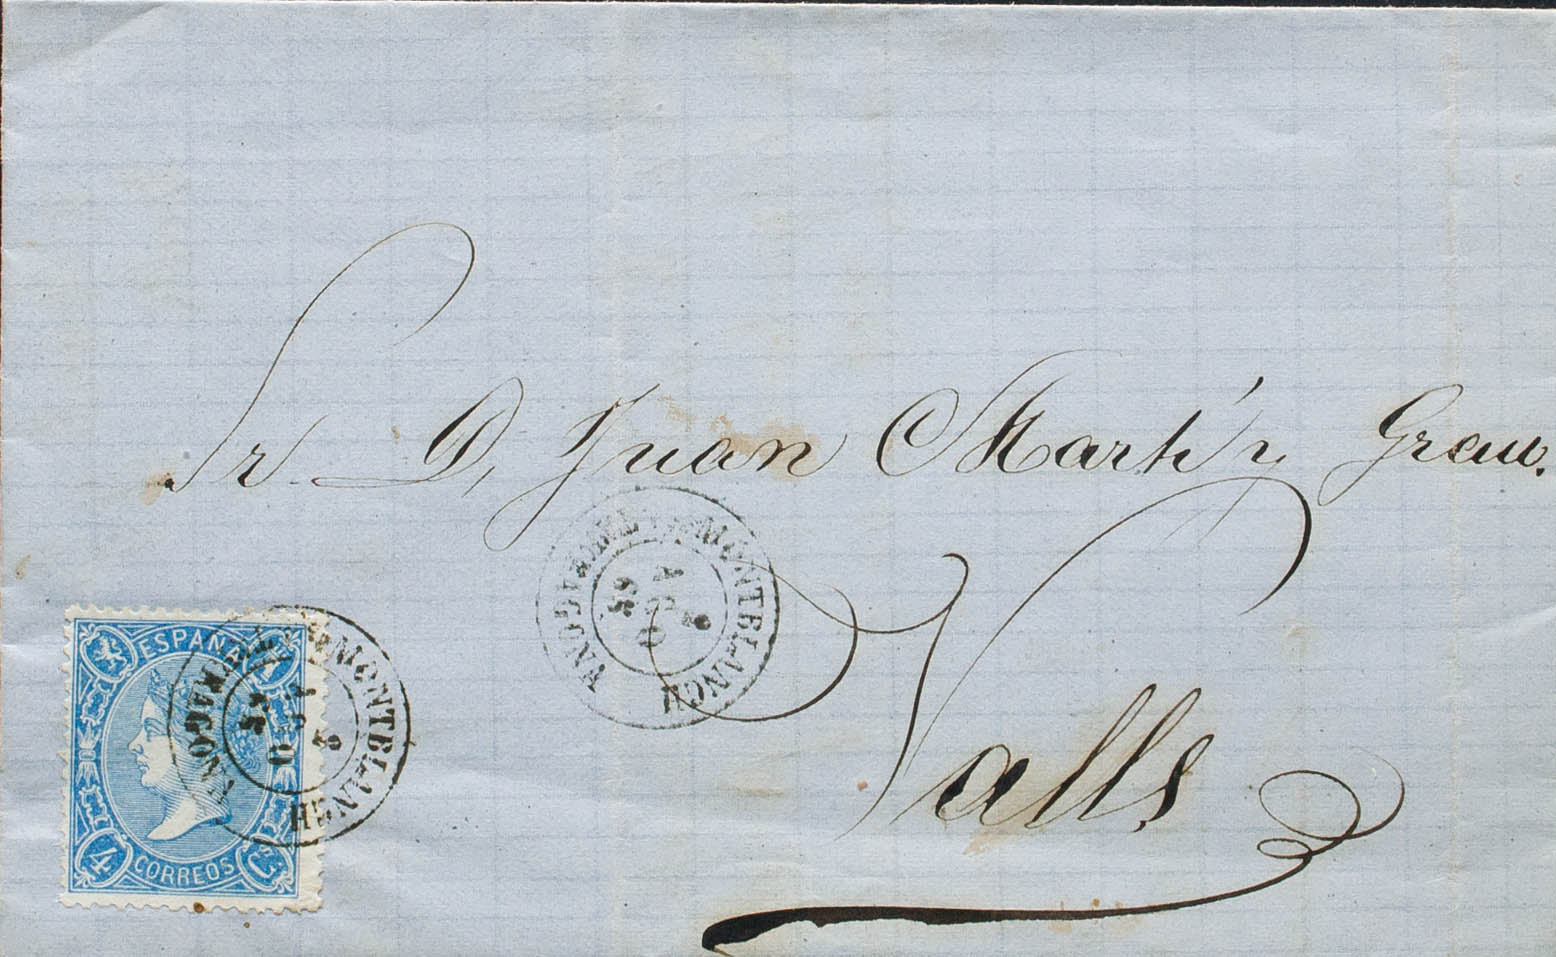 Sr. D. Juan Martí y Grau.
Valls
MONTBLANCH
AGO
65
ESPAÑA
4 Cs
CORREOS
MONTBLANCH
AGO
65